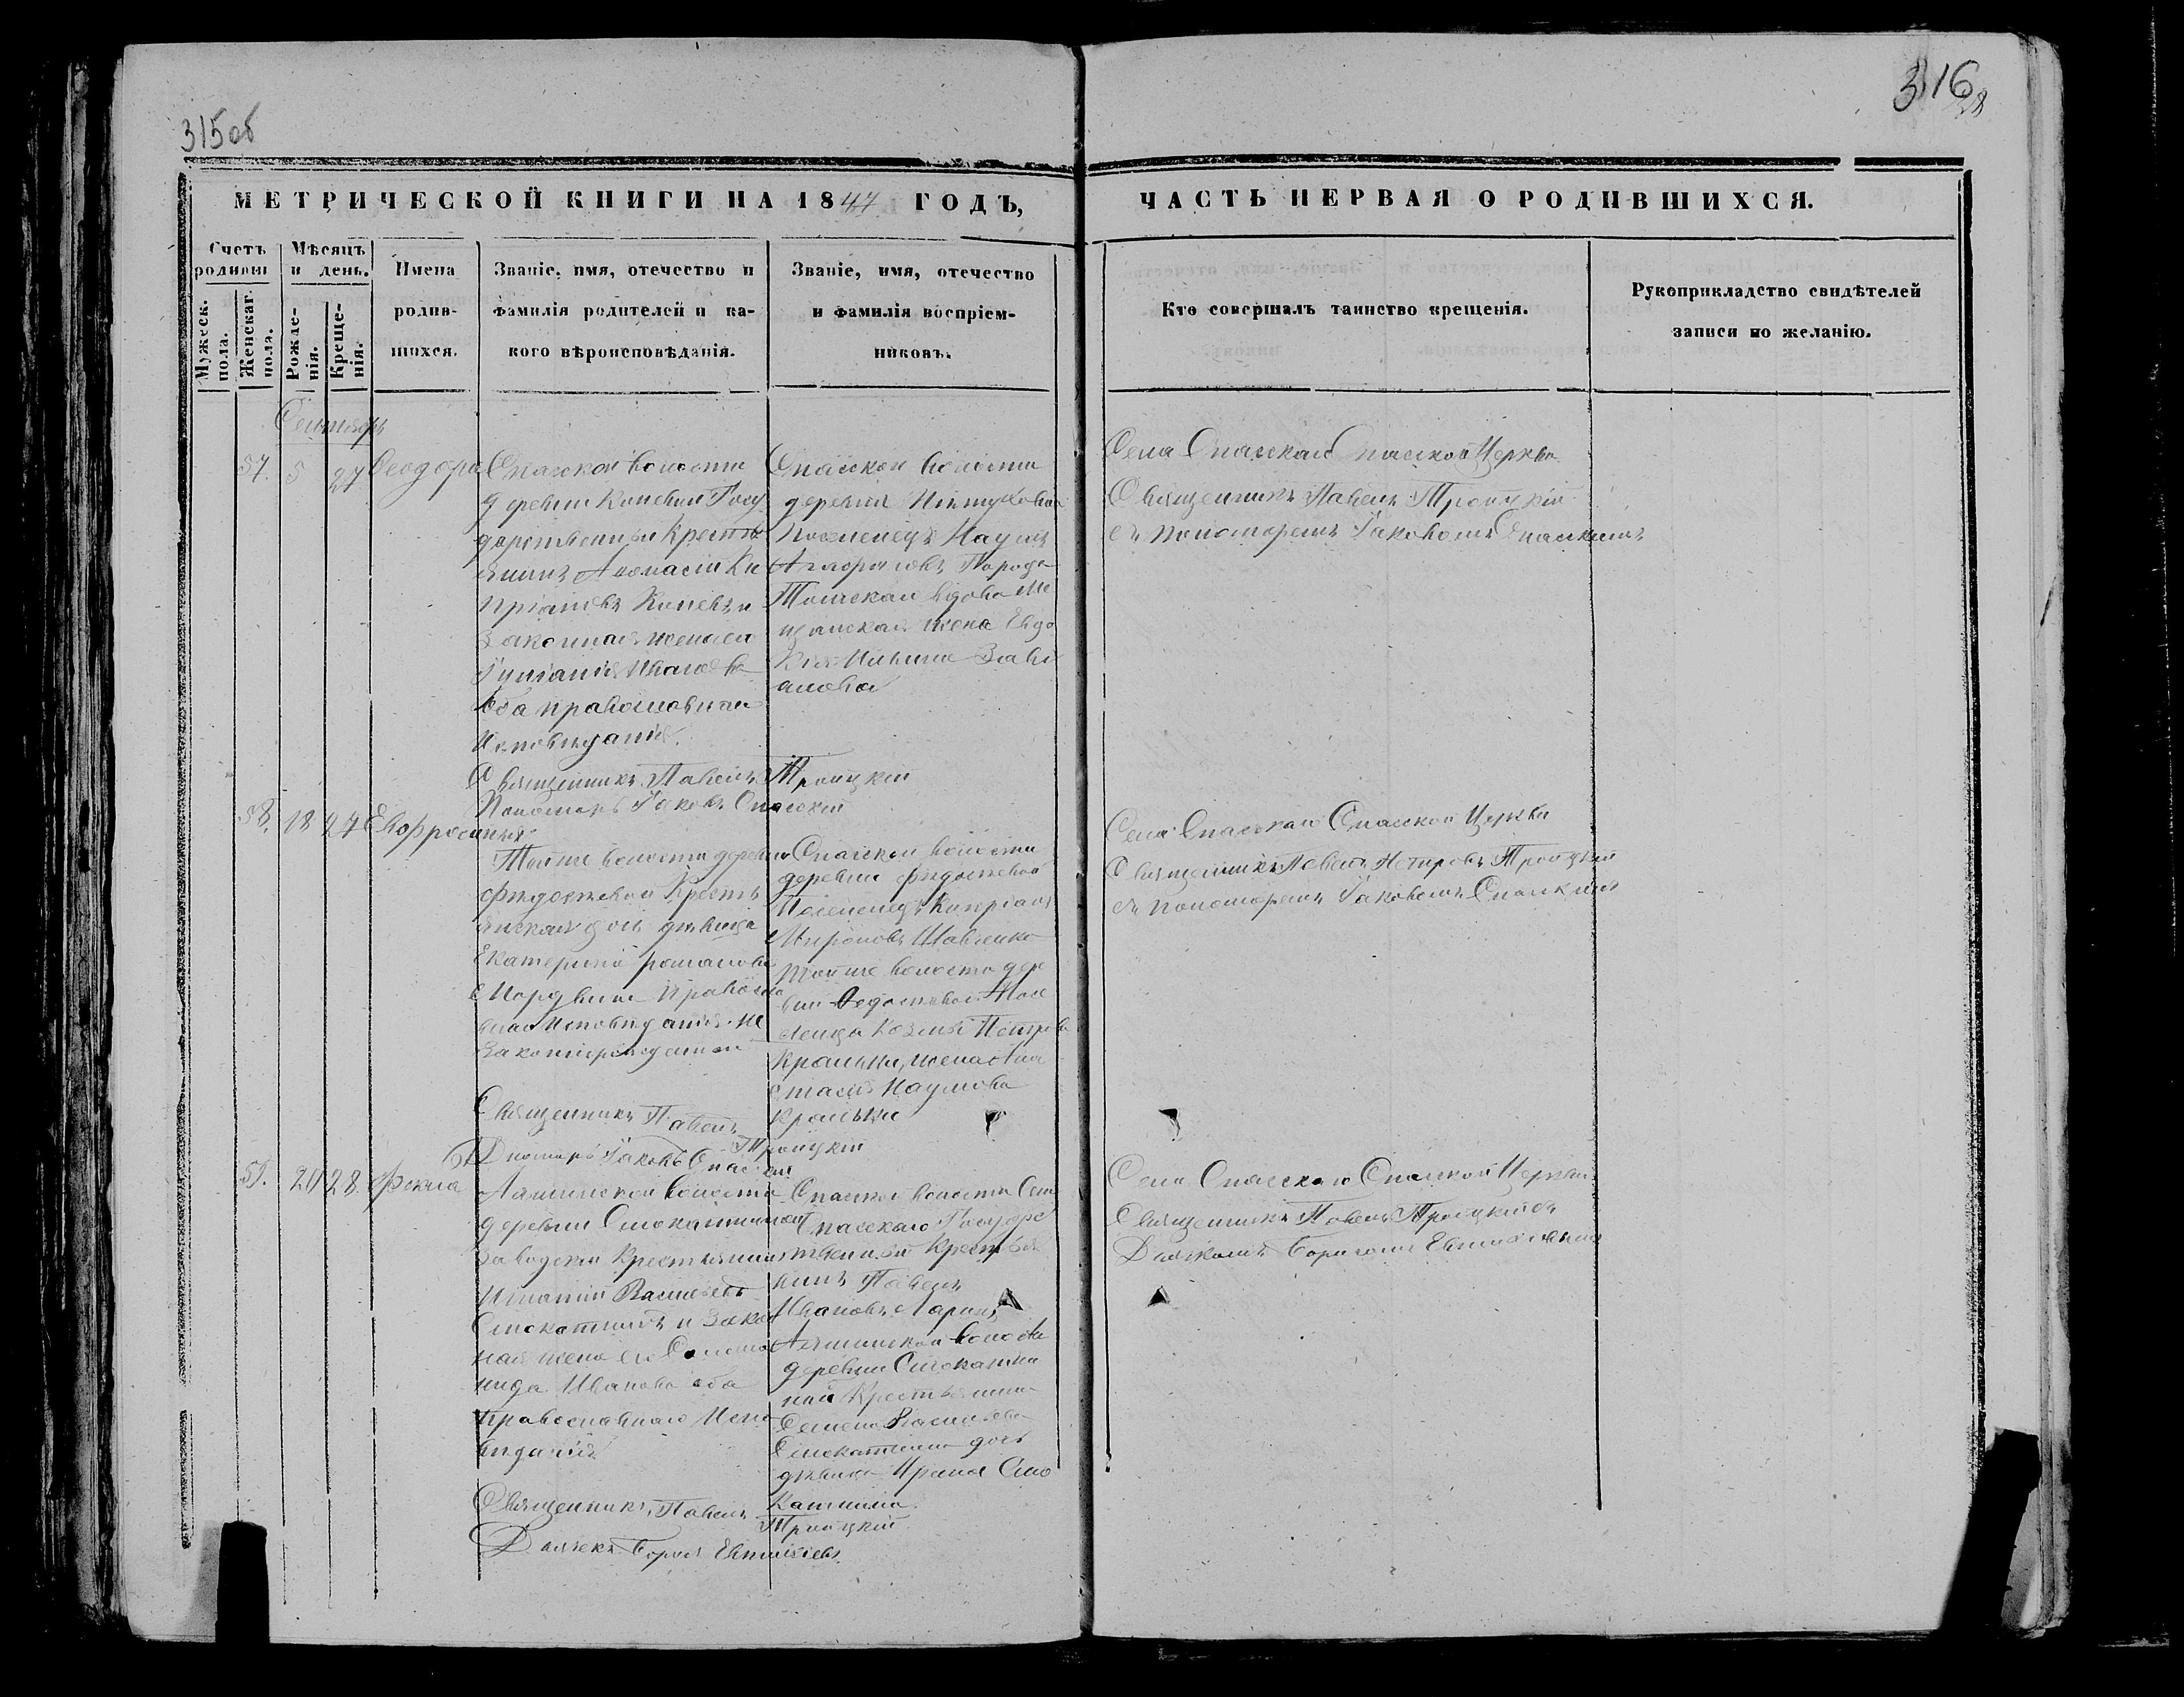 315об
316
МЕТРИЧЕСКОЙ КНИГИ НА 1847 ГОДЪ,
ЧАСТЬ ПЕРВАЯ О РОДИВШИХСЯ.
Счетъ родивш
Мужеск. пола.
Женскаг. пола.
Мѣсяцъ и день.
Рожденія.
Креще-
нія.
Имена
родив-
шихся.
Званіе, имя, отечество и
фамилія родителей и ка-
кого вѣроисповѣданія.
Званіе, имя, отечество
и фамилія воспріем-
никовъ.
Кто совершалъ таинство крещенія.
Рукоприкладство свидѣтелей
записи по желанію.
Сентябрь
57. 5 27 Феодора
Спаской волости
деревни Коневой Госу
дарственный Крестья
янинъ Афонасій Ки
пріановъ Коневъ и
законная жена его
Іуліанія Иванова
Оба православнаго
Исповѣданія.
Священникъ Павелъ Троицкій
Пономарь Іаковъ Спаскій
Спаской волости
деревни
Поселенецъ Наумъ
Города
Томска вдова Ме
щанская жена Евдо
кія Ильина
Села Спаскаго Спаской Церкви
Священникъ Павелъ Троицкій
съ пономаремъ Іаковомъ Спаскимъ
58. 18 27 Евфросинія
Тойже волости деревни
Крестья
янская дочь дѣвица
Екатерина Романова
Мордвина Православ
наго Исповѣданія не
законнорожденная
Священникъ Павелъ Троицкій
Пономарь Іаковъ Спаскій
Спаской волости
деревни
Поселенецъ Кипріанъ
Мироновъ Шавленко
Тойже волости дере
вни Посе
ленца Козмы Петрова
жена Ана
стасія Наумова
Села Спаскаго Спаской Церкви
Священникъ Павелъ Петровъ Троицкій
съ пономаремъ Іаковомъ Спаскимъ
59. 20 28 Фекла
волости
деревни Смокатиной
заводской Крестьянинъ
Игнатій Васильевъ
Смокатинъ и закон
ная жена его Соломо
нида Иванова оба
православнаго Испо
вѣданія
Священникъ Павелъ Троицкій
Дьячекъ Борисъ Евтихіевъ
Спаской волости Села
Спаскаго Государс
твенный Крестья
нинъ Павелъ
Ивановъ Ларинъ
волости
деревни Смокати
ной Крестьянина
Семена Васильева
Смокатина дочь
дѣвица Ирина Смо
катина.
Села Спаскаго Спаской Церкви
Священникъ Павелъ Троицкій съ
Дьячкомъ Борисомъ Евтихіевымъ